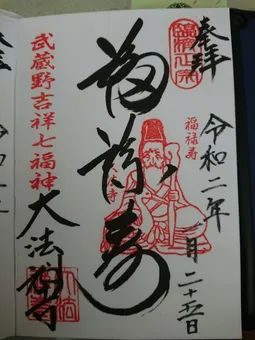 奉拝
令和二年一月二十五日
福禄寿
福禄寿
武蔵野吉祥七福神
大法禅寺